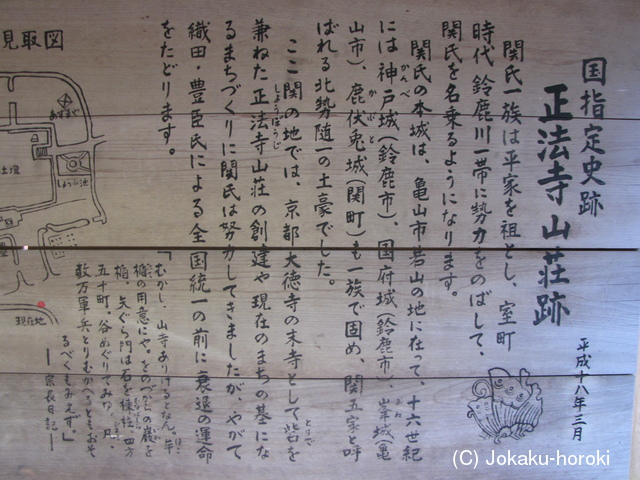 国指定史跡
正法寺山荘跡
平成十八年三月
関氏一族は平家を祖とし、室町
時代 鈴鹿川一帯に勢力をのばして、
関氏を名乗るようになります。
関氏の本城は、亀山市若山の地に在って、十六世紀
には 神戸城(鈴鹿市)、国府城(鈴鹿市)、峯城(亀
かんべ
みね
山市)、鹿伏兎城(関町)も一族で固め、関五家と呼
かぶと
ばれる北勢随一の土豪でした。
ここ関の地では、京都大徳寺の末寺として砦を
とりで
兼ねた正法寺山荘の創建や現在のまちの基にな
しょうぼうじ
るまちづくりに関氏は努力してきましたが、やがて
織田・豊臣氏による全国統一の前に衰退の運命
をたどります。
「むかし、山寺ありけるとなん。
の用意にや。をのづからの巌を
楯、矢ぐら門は石を
四方
五十町。谷めぐりてみゆ。
数万軍兵とりむかふともおそ
るべくもみえず。」
― 宗長日記 ―
見取図
あずまや
土壇
しょうぶ池
現在地
(C) Jokaku-horoki